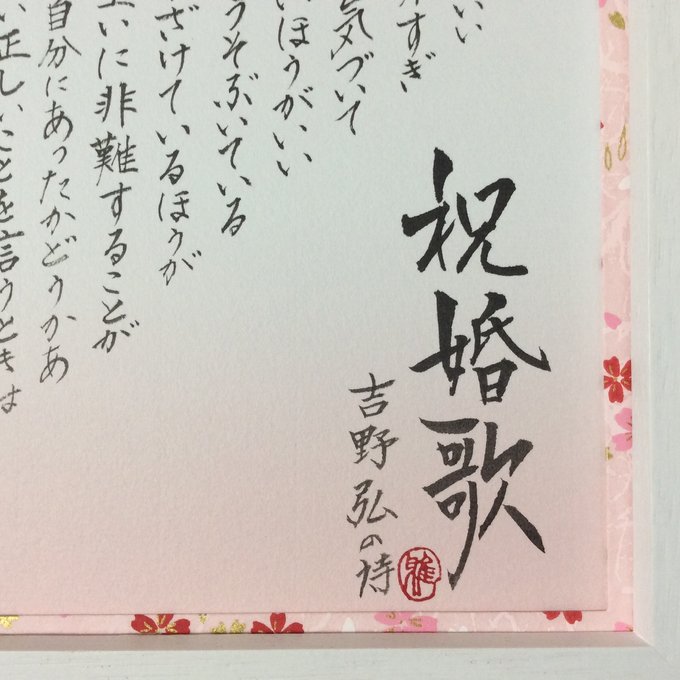 祝婚歌
吉野弘の詩
雅
いい
すぎ
気づいて
いほうがいい
うそぶいている
ざけているほうが
いに非難することが
自分にあったかどうかあ
い正しいことを言うときは